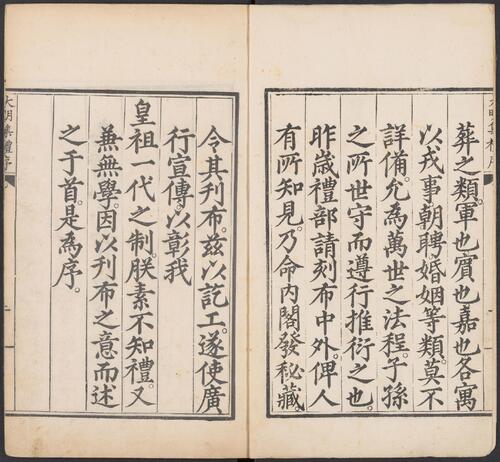 葬之類。軍也賓也嘉也各寓
以戎事朝聘婚姻等類。莫不
詳備。允為萬世之法程。子孫
之所世守而遵行推衍之也。
昨歲禮部請刻布中外。俾人
有所知見。乃命內閣發秘藏。
令其刋布。兹以訖工。遂使廣
行宣傳。以彰我
皇祖一代之制。朕素不知禮。又
蕪無學。因以刋布之意而述
之于首。是為序。
大明集禮序